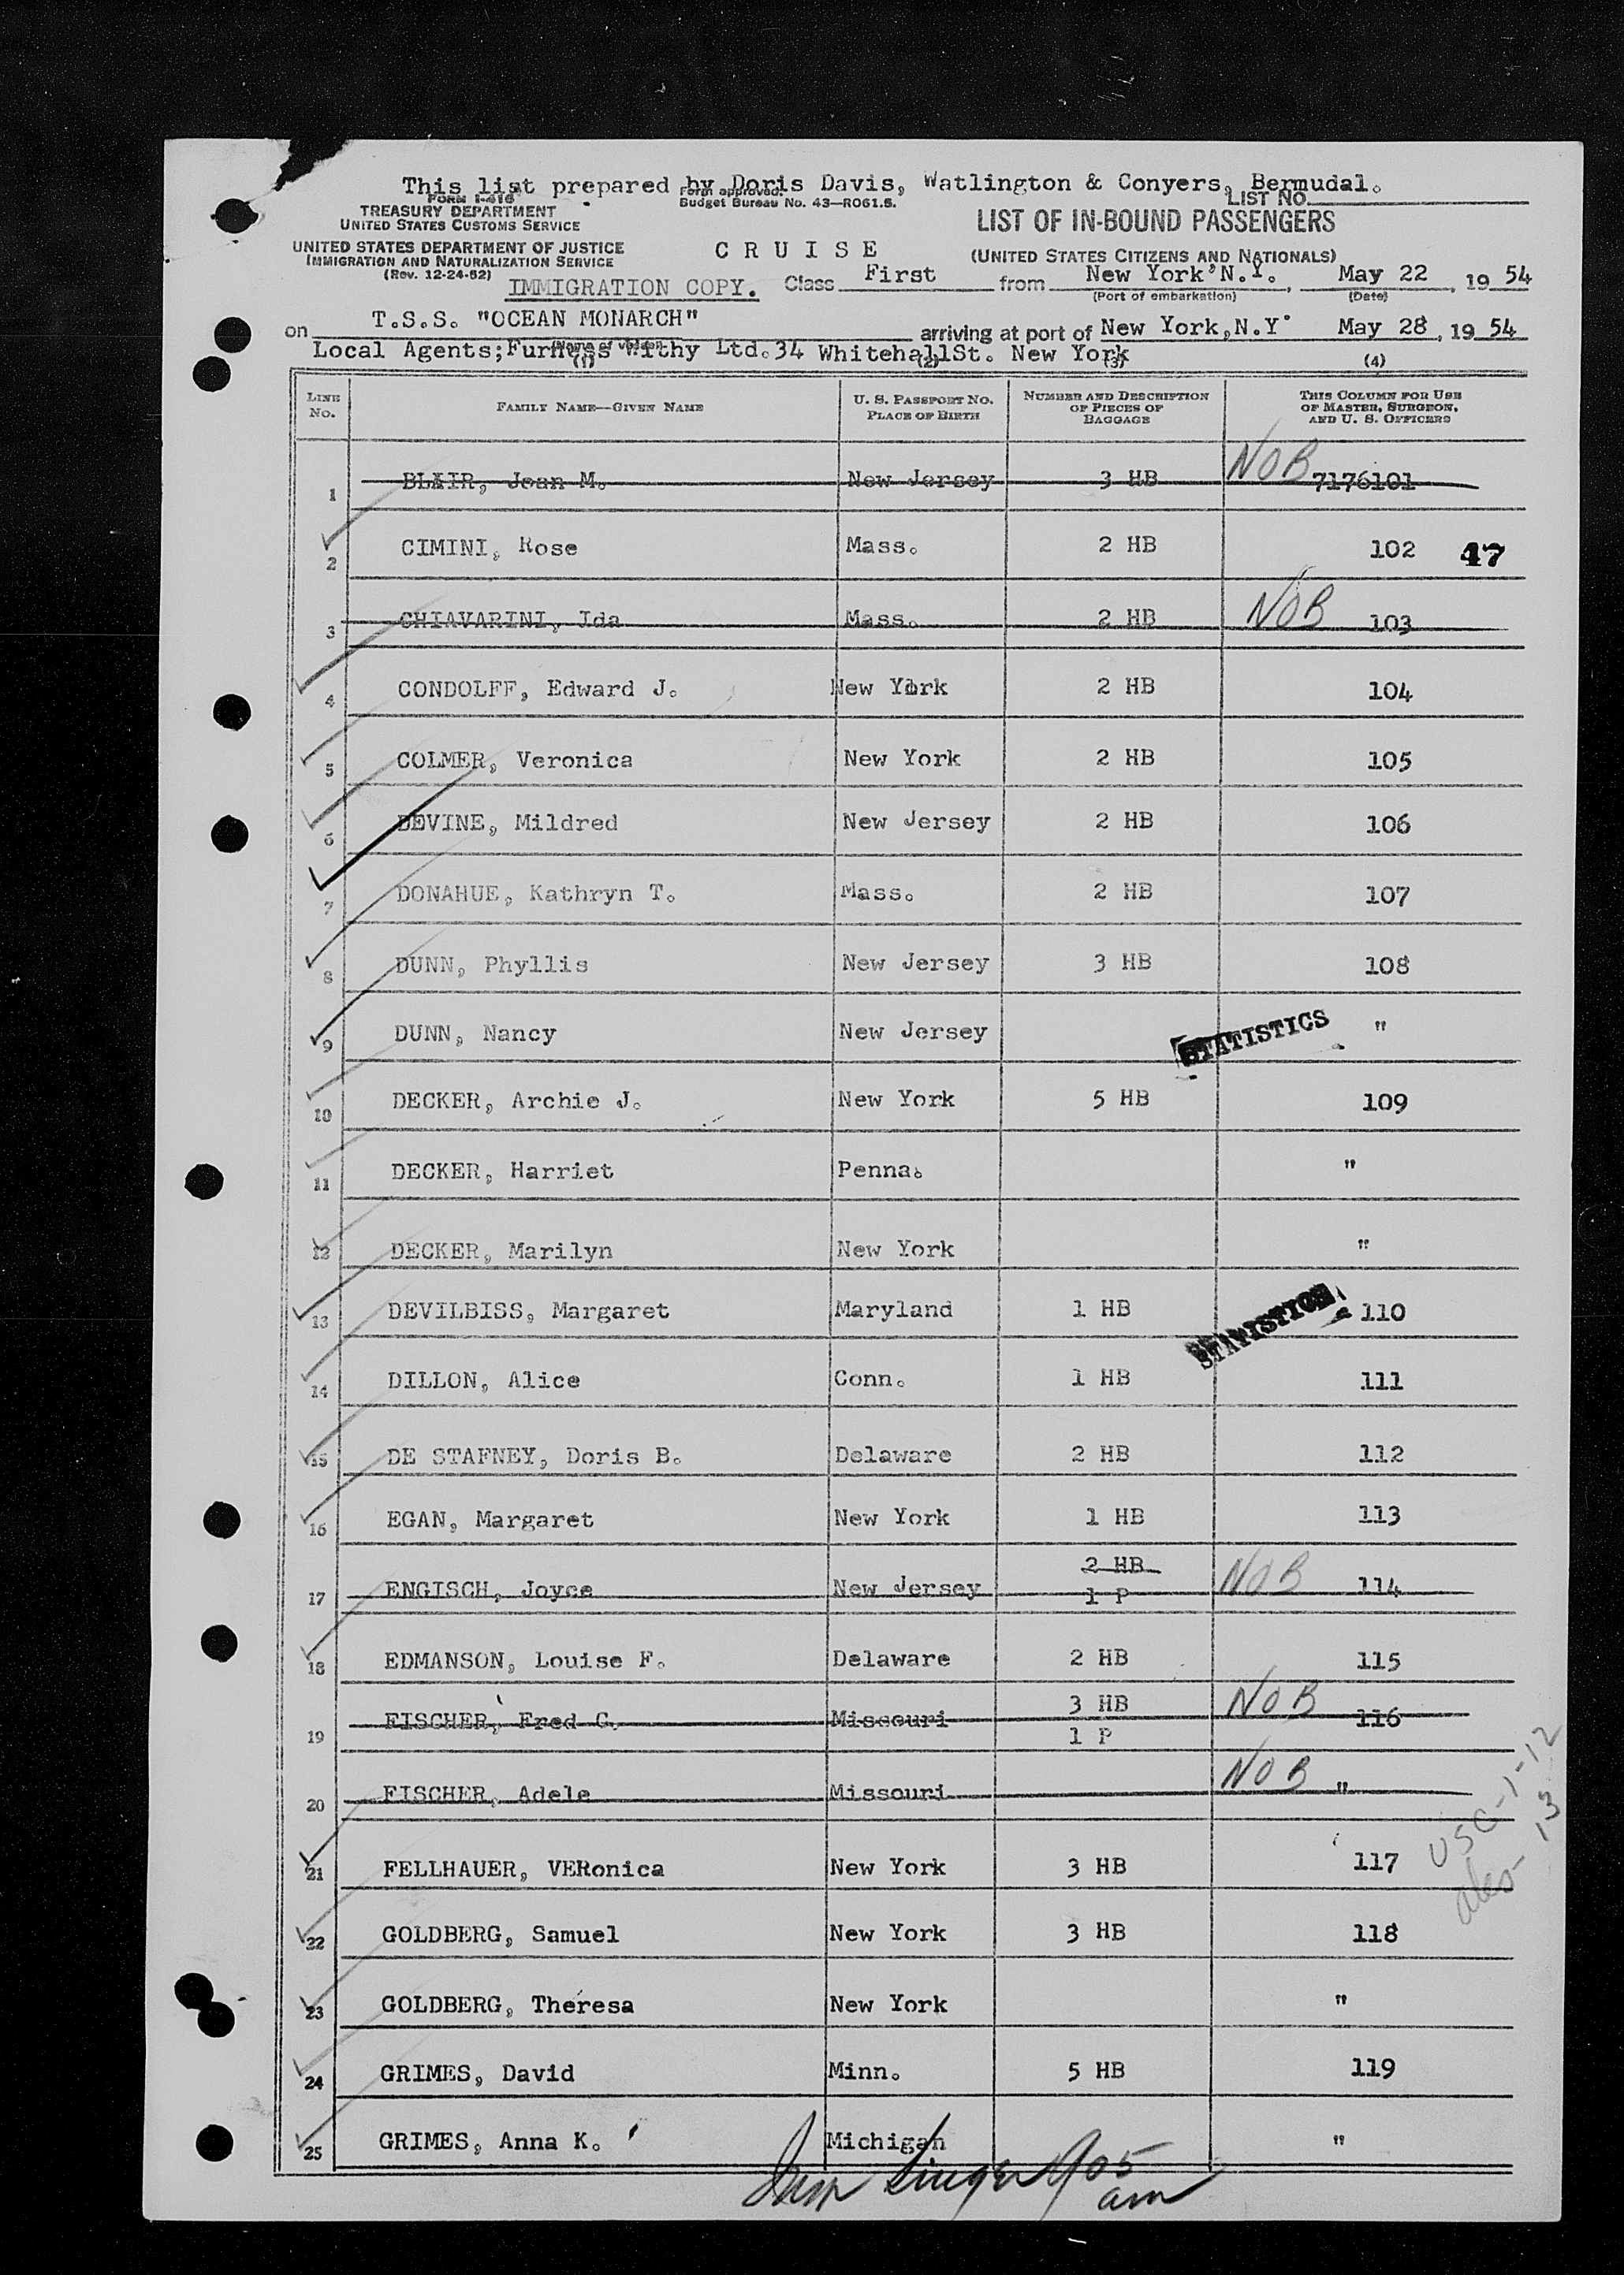 This list prepared by Doris Davis, Watlington & Conyers, Bermudal.
FORM I-416
Form approved.
Budget Bureau No. 43—R061.5.
LIST NO.
TREASURY DEPARTMENT
UNITED STATES CUSTOMS SERVICE
LIST OF IN-BOUND PASSENGERS
UNITED STATES DEPARTMENT OF JUSTICE
IMMIGRATION AND NATURALIZATION SERVICE
(Rev. 12-24-52)
CRUISE
(UNITED STATES CITIZENS AND NATIONALS)
IMMIGRATION COPY. Class First from New York, N.Y., May 22, 19 54
(Port of embarkation) (Date)
on T.S.S. "OCEAN MONARCH" arriving at port of New York, N.Y. May 28, 19 54
(Name of vessel)
Local Agents; Furness Withy Ltd. 34 Whitehall St. New York
(1) (2) (3) (4)
LINE NO. FAMILY NAME—GIVEN NAME U. S. PASSPORT NO. PLACE OF BIRTH NUMBER AND DESCRIPTION OF PIECES OF BAGGAGE THIS COLUMN FOR USE OF MASTER, SURGEON, AND U. S. OFFICERS
1 BLAIR, Jean M. New Jersey 3 HB NOB 7176101
2 CIMINI, Rose Mass. 2 HB 102 47
3 CHIAVARINI, Ida Mass. 2 HB NOB 103
4 CONDOLFF, Edward J. New York 2 HB 104
5 COLMER, Veronica New York 2 HB 105
6 DEVINE, Mildred New Jersey 2 HB 106
7 DONAHUE, Kathryn T. Mass. 2 HB 107
8 DUNN, Phyllis New Jersey 3 HB 108
9 DUNN, Nancy New Jersey STATISTICS "
10 DECKER, Archie J. New York 5 HB 109
11 DECKER, Harriet Penna. "
12 DECKER, Marilyn New York "
13 DEVILBISS, Margaret Maryland 1 HB STATISTICS 110
14 DILLON, Alice Conn. 1 HB 111
15 DE STAFNEY, Doris B. Delaware 2 HB 112
16 EGAN, Margaret New York 1 HB 113
17 ENGISCH, Joyce New Jersey 2 HB 1 P NOB 114
18 EDMANSON, Louise F. Delaware 2 HB 115
19 FISCHER, Fred C. Missouri 3 HB 1 P NOB 116
20 FISCHER, Adele Missouri NOB "
21 FELLHAUER, VERonica New York 3 HB 117
USC-1-12
13
22 GOLDBERG, Samuel New York 3 HB 118
23 GOLDBERG, Theresa New York "
24 GRIMES, David Minn. 5 HB 119
25 GRIMES, Anna K. Michigan "
905 am